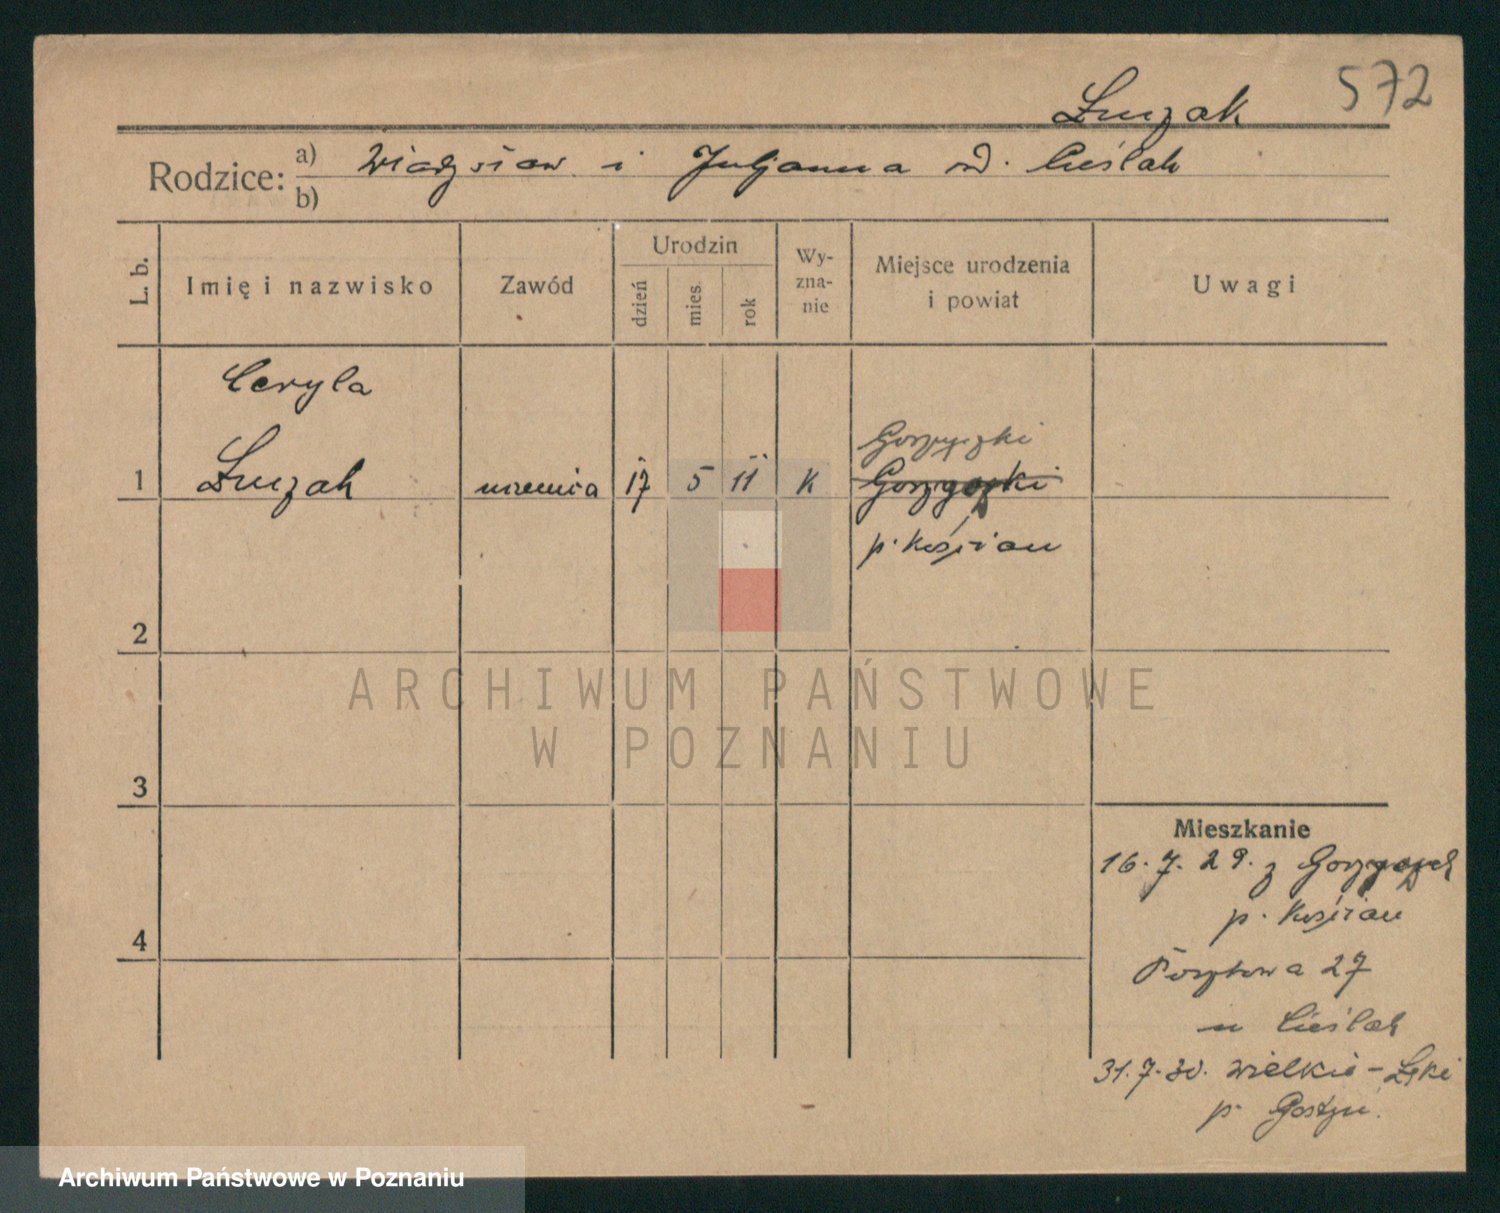 572
Łuczak
Rodzice: a) Władysław i Juljanna rd. Cieślak
b)
L. b.
Imię i nazwisko
Zawód
Urodzin
dzień
mies.
rok
Wy-
zna-
nie
Miejsce urodzenia
i powiat
Uwagi
Ceryla
Gorzyczki
1 Łuczak uczenica 17 5 11 K
p. Kościan
2
3
4
Mieszkanie
16.7.29. z
p. Kościan
Pocztowa 27
u Cieślak
31.7.30. Wielkie-Łęki
p. Gostyń.
ARCHIWUM PAŃSTWOWE
W POZNANIU
Archiwum Państwowe w Poznaniu